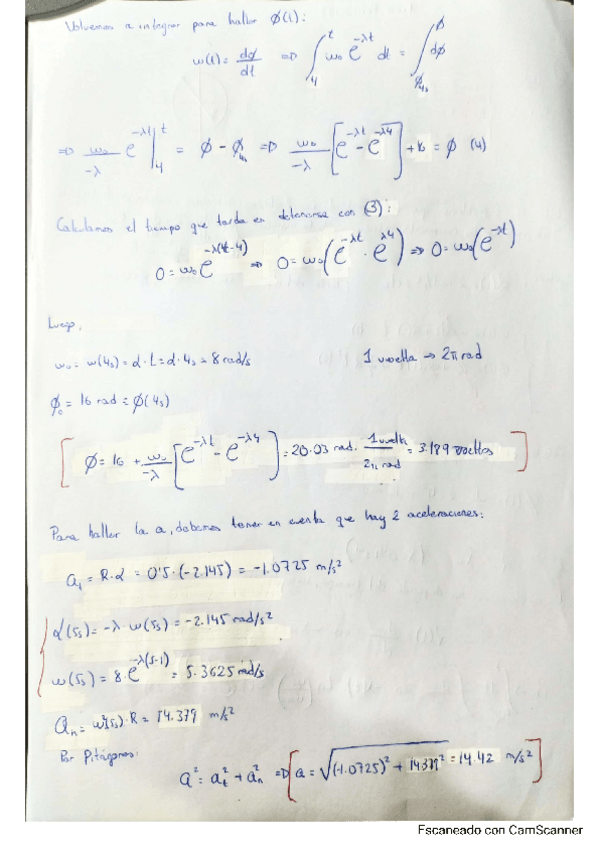 Volvemos a integrar para hallar φ(t):
w(t) = dφ/dt => ∫₄ᵗ w₀ e^(-λt) dt = ∫_φ₄ₛ^φ dφ
=> w₀/-λ e^(-λt) |₄ᵗ = φ - φ₄ₛ => w₀/-λ [e^(-λt) - e^(-λ4)] + 16 = φ (4)
Calculamos el tiempo que tarda en detenerse con (3):
0 = w₀ e^(-λ(t-4)) => 0 = w₀(e^(-λt) · e^(λ4)) => 0 = w₀(e^(-λt))
Luego,
w₀ = w(4s) = α · t = α · 4s = 8 rad/s 1 vuelta → 2π rad
φ₀ = 16 rad = φ(4s)
[φ = 16 + w₀/-λ [e^(-λt) - e^(-λ4)] = 20.03 rad · 1 vuelta/2π rad = 3.189 vueltas]
Para hallar la a, debemos tener en cuenta que hay 2 aceleraciones:
a_t = R·α = 0'5·(-2.145) = -1.0725 m/s²
α(5s) = -λ · w(5s) = -2.145 rad/s²
w(5s) = 8·e^(-λ(5-1)) = 5.3625 rad/s
a_n = w²(5s)·R = 14.379 m/s²
Por Pitágoras:
a² = a_t² + a_n² => [a = √((-1.0725)² + 14.379²) = 14.42 m/s²]
Escaneado con CamScanner